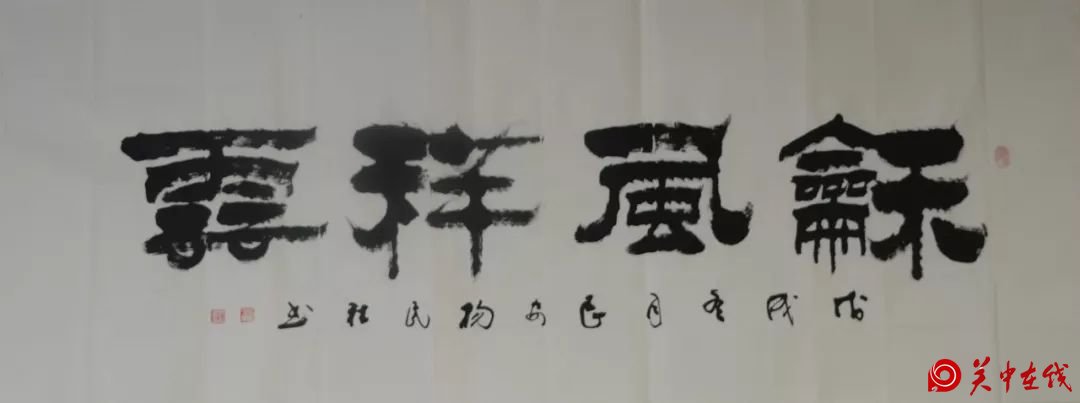 龢風祥雲
戊戌冬月長安楊民社书
关中在线